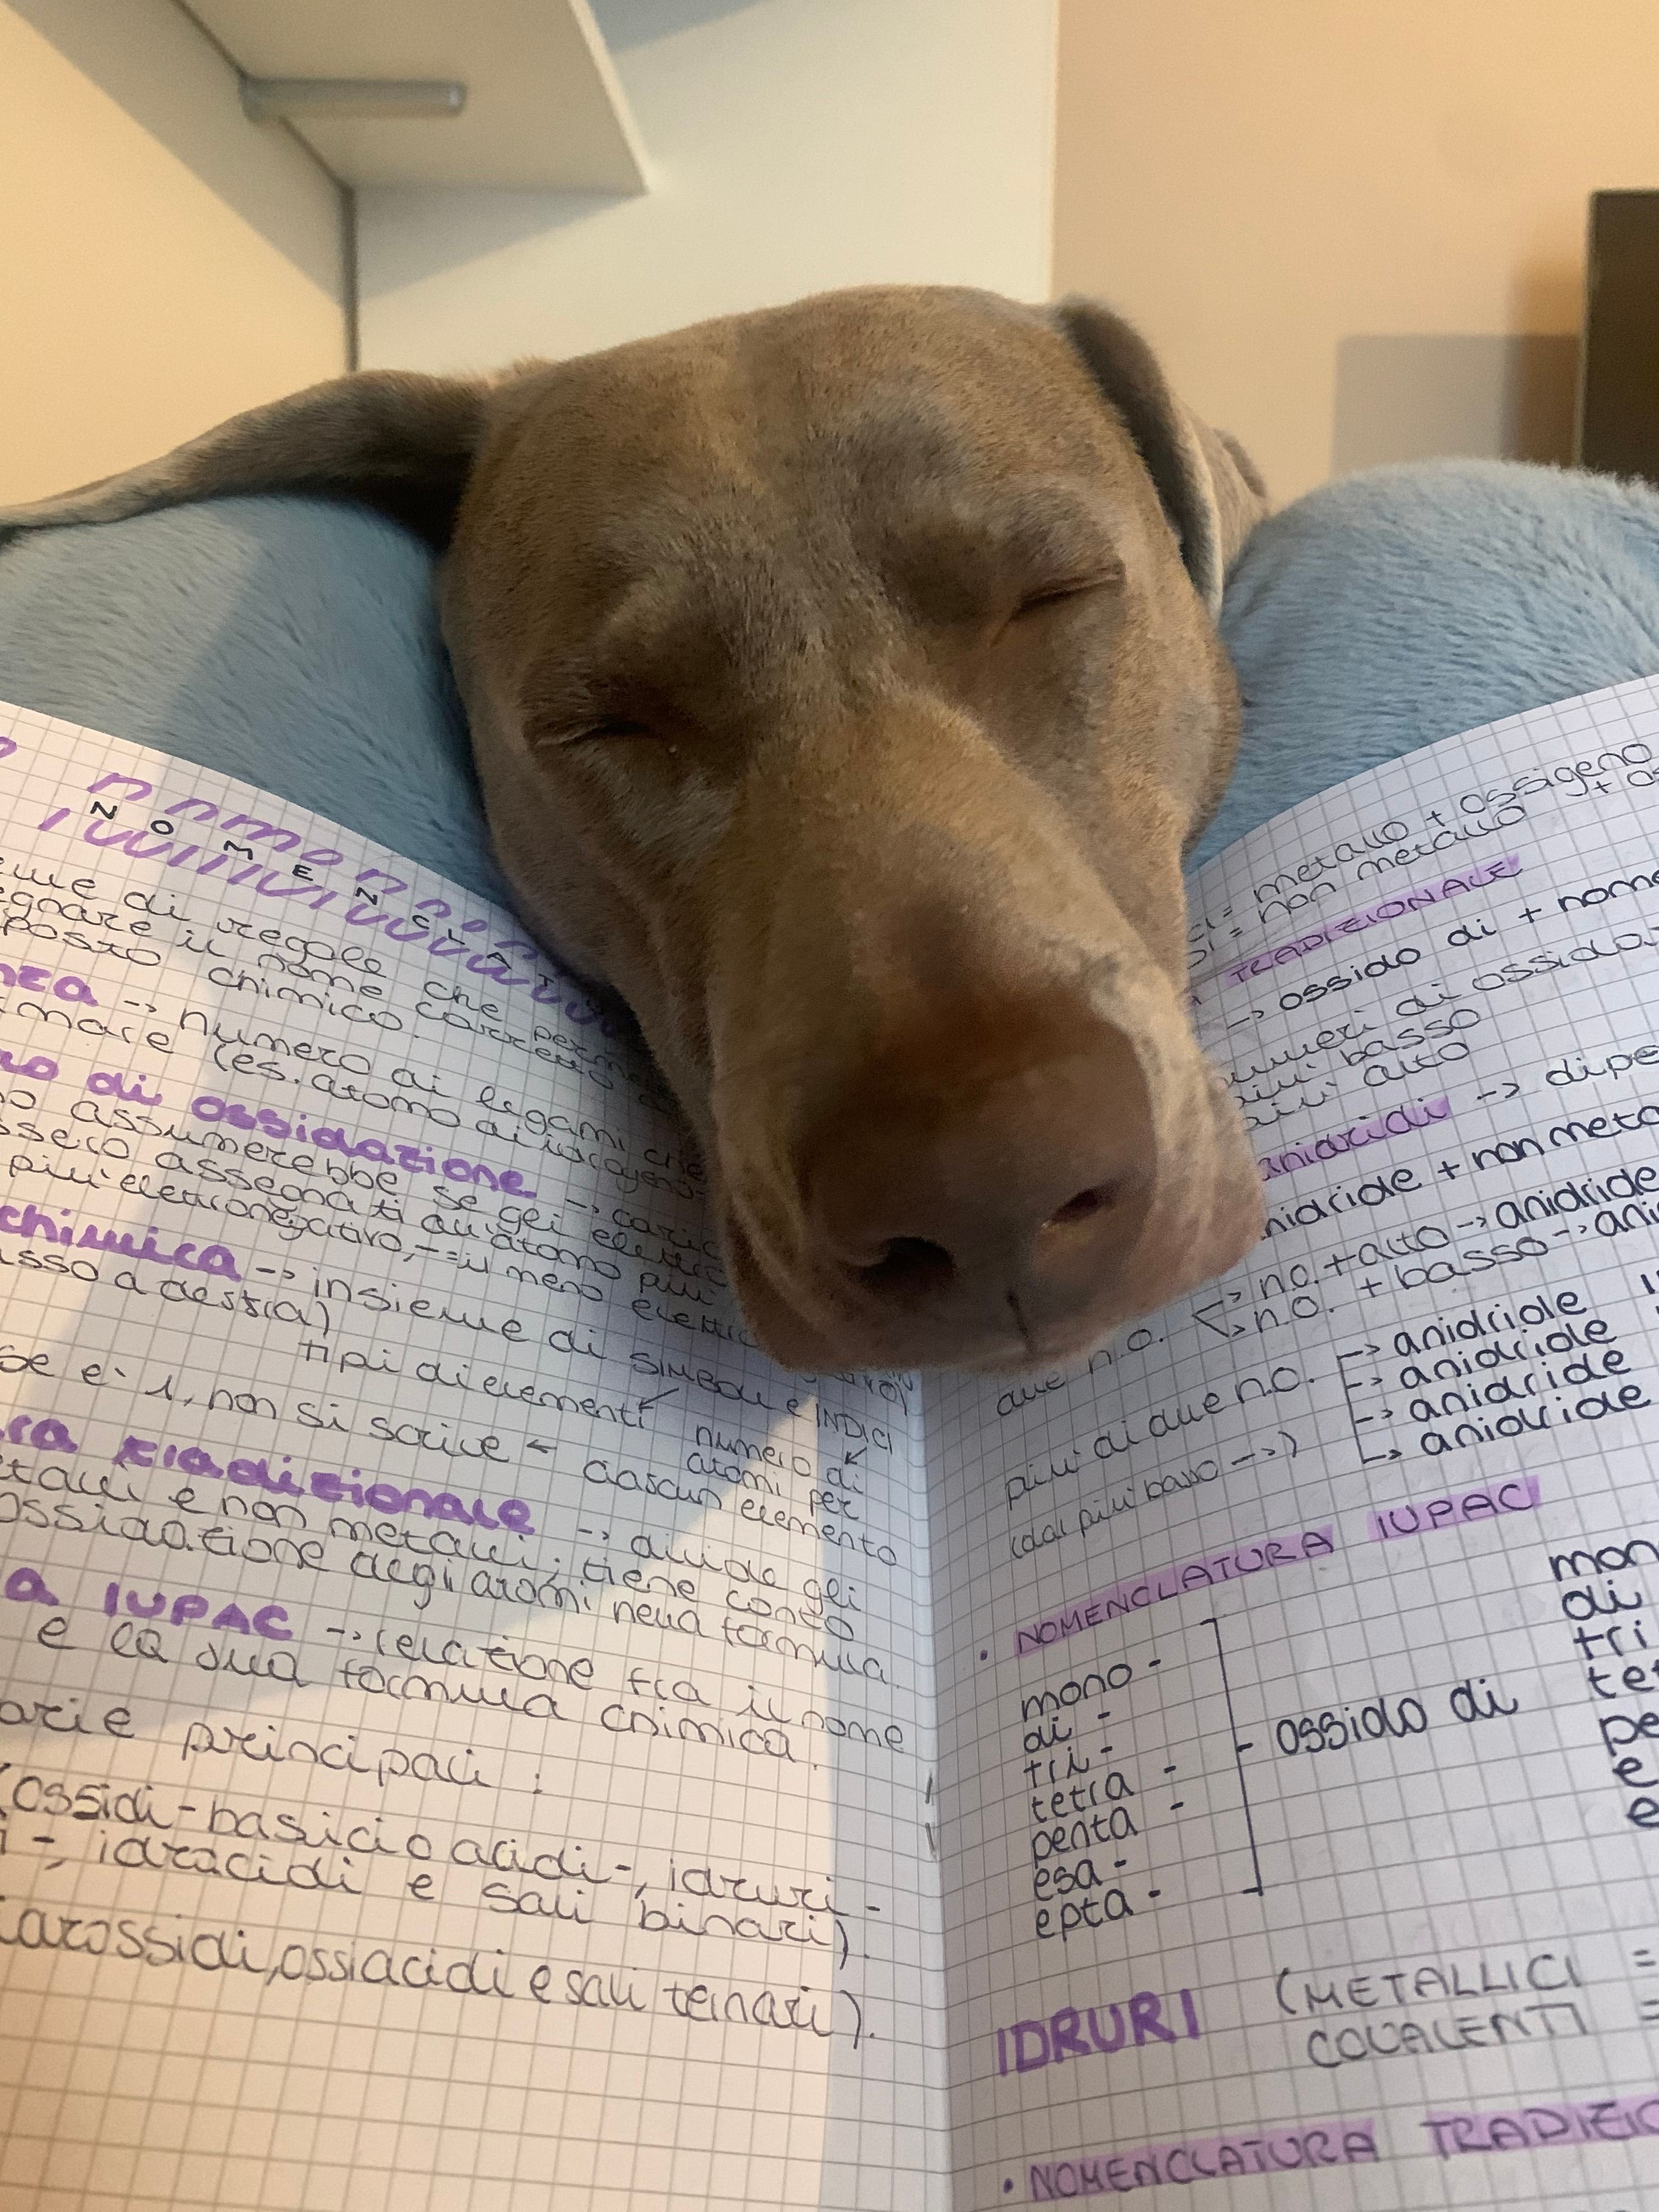 NOMENCLATU
di regole che perm
il nome corretto
posto chimico.
nza -> numero di legami che
mare (es. atomo di idrogeno
o di ossidazione -> caric
assumerebbe se gli elettro
ssero assegnati all'atomo più
più elettronegativo, -= il meno elettro
chimica -> insieme di SIMBOLI e INDICI
asso a destra)
tipi di elementi
numero di
atomi per
ciascun elemento
se e' 1, non si scrive <-
ra tradizionale -> divide gli
metalli e non metalli; tiene conto
ossidazione degli atomi nella formula.
a IUPAC -> relazione fra il nome
e la sua formula chimica.
arie principali:
(ossidi-basici o acidi-, idruri-
i-, idracidi e sali binari).
idrossidi, ossiacidi e sali ternari).
ci = metallo + ossigeno
di = non metallo + os
TRADIZIONALE
-> ossido di + nome
numeri di ossidaz
più basso
più alto
anidridi -> dipe
anidride + non meta
due n.o. -> n.o. + alto -> anidride
-> n.o. + basso -> ani
più di due n.o. -> anidride
-> anidride
-> anidride
-> anidride
(dal più basso -->)
• NOMENCLATURA IUPAC
mono-
di-
tri-
tetra-
penta-
esa-
epta-
ossido di
mon
di
tri
tet
pe
e
e
IDRURI (METALLICI =
COVALENTI =
• NOMENCLATURA TRADIZIO